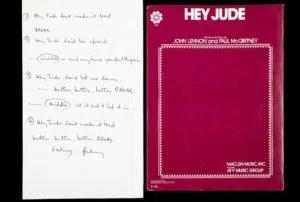 ① Hey Jude don't make it bad
BREAK
② Hey Jude don't be afraid
(middle) — and any time you feel the pain
③ Hey Jude don't let me down
— better, better, better BREAK
(middle) let it out & let it in
④ Hey Jude don't make it bad
better, better, better BREAK
Fading fading
HEY JUDE
JOHN LENNON and PAUL McCARTNEY
MACLEN MUSIC, INC.
ATV MUSIC GROUP